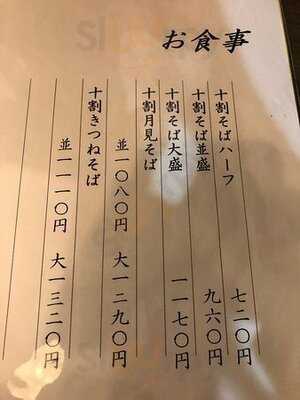 お食事
十割そばハーフ 七二〇円
十割そば並盛 九六〇円
十割そば大盛 一一七〇円
十割月見そば
並一〇八〇円 大一二九〇円
十割きつねそば
並一一一〇円 大一三二〇円